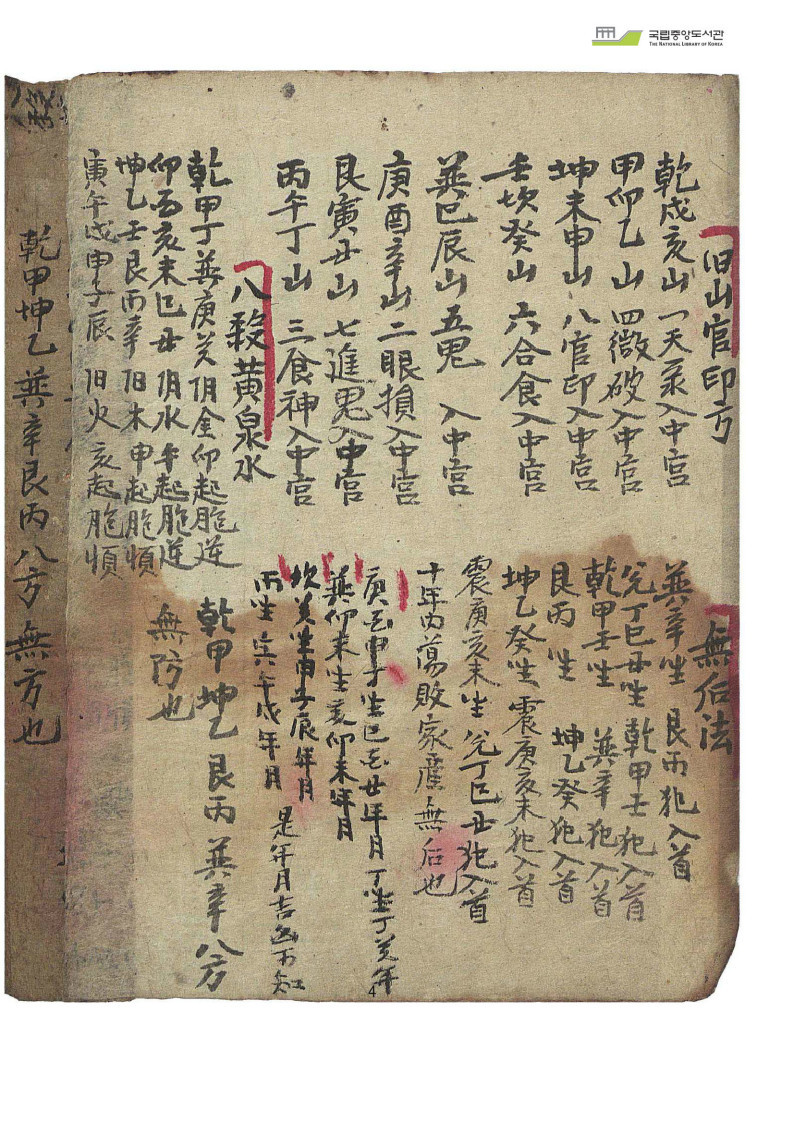 국립중앙도서관
THE NATIONAL LIBRARY OF KOREA
旧山官印方
乾戌亥山 一天彔入中宮
甲卯乙山 四微破入中宮
坤未申山 八官印入中宮
壬坎癸山 六合食入中宮
巽巳辰山 五鬼 入中宮
庚酉辛山 二眼損入中宮
艮寅丑山 七進鬼入中宮
丙午丁山 三食神入中宮
八殺黃泉水
乾甲丁巽庚癸 旧金卯起胞逆
卯酉亥未巳丑 旧水午起胞逆
坤乙壬艮丙辛 旧木申起胞順
寅午戌申子辰 旧火亥起胞順
無后法
巽辛坐 艮丙犯入首
兌丁巳丑坐 乾甲壬犯入首
乾甲壬坐 巽辛犯入首
艮丙坐 坤乙癸犯入首
坤乙癸坐 震庚亥未犯入首
震庚亥未坐 兌丁巳丑犯入首
十年內蕩敗家產無后也
庚 申子坐巳 丑年月 丁坐丁 年
巽卯未坐亥卯未年月
坎癸坐申子辰年月
丙坐寅午戌年月 是年月吉凶可知
乾甲坤乙艮丙巽辛八方
無防也
乾甲坤乙巽辛艮丙八方無方也
4